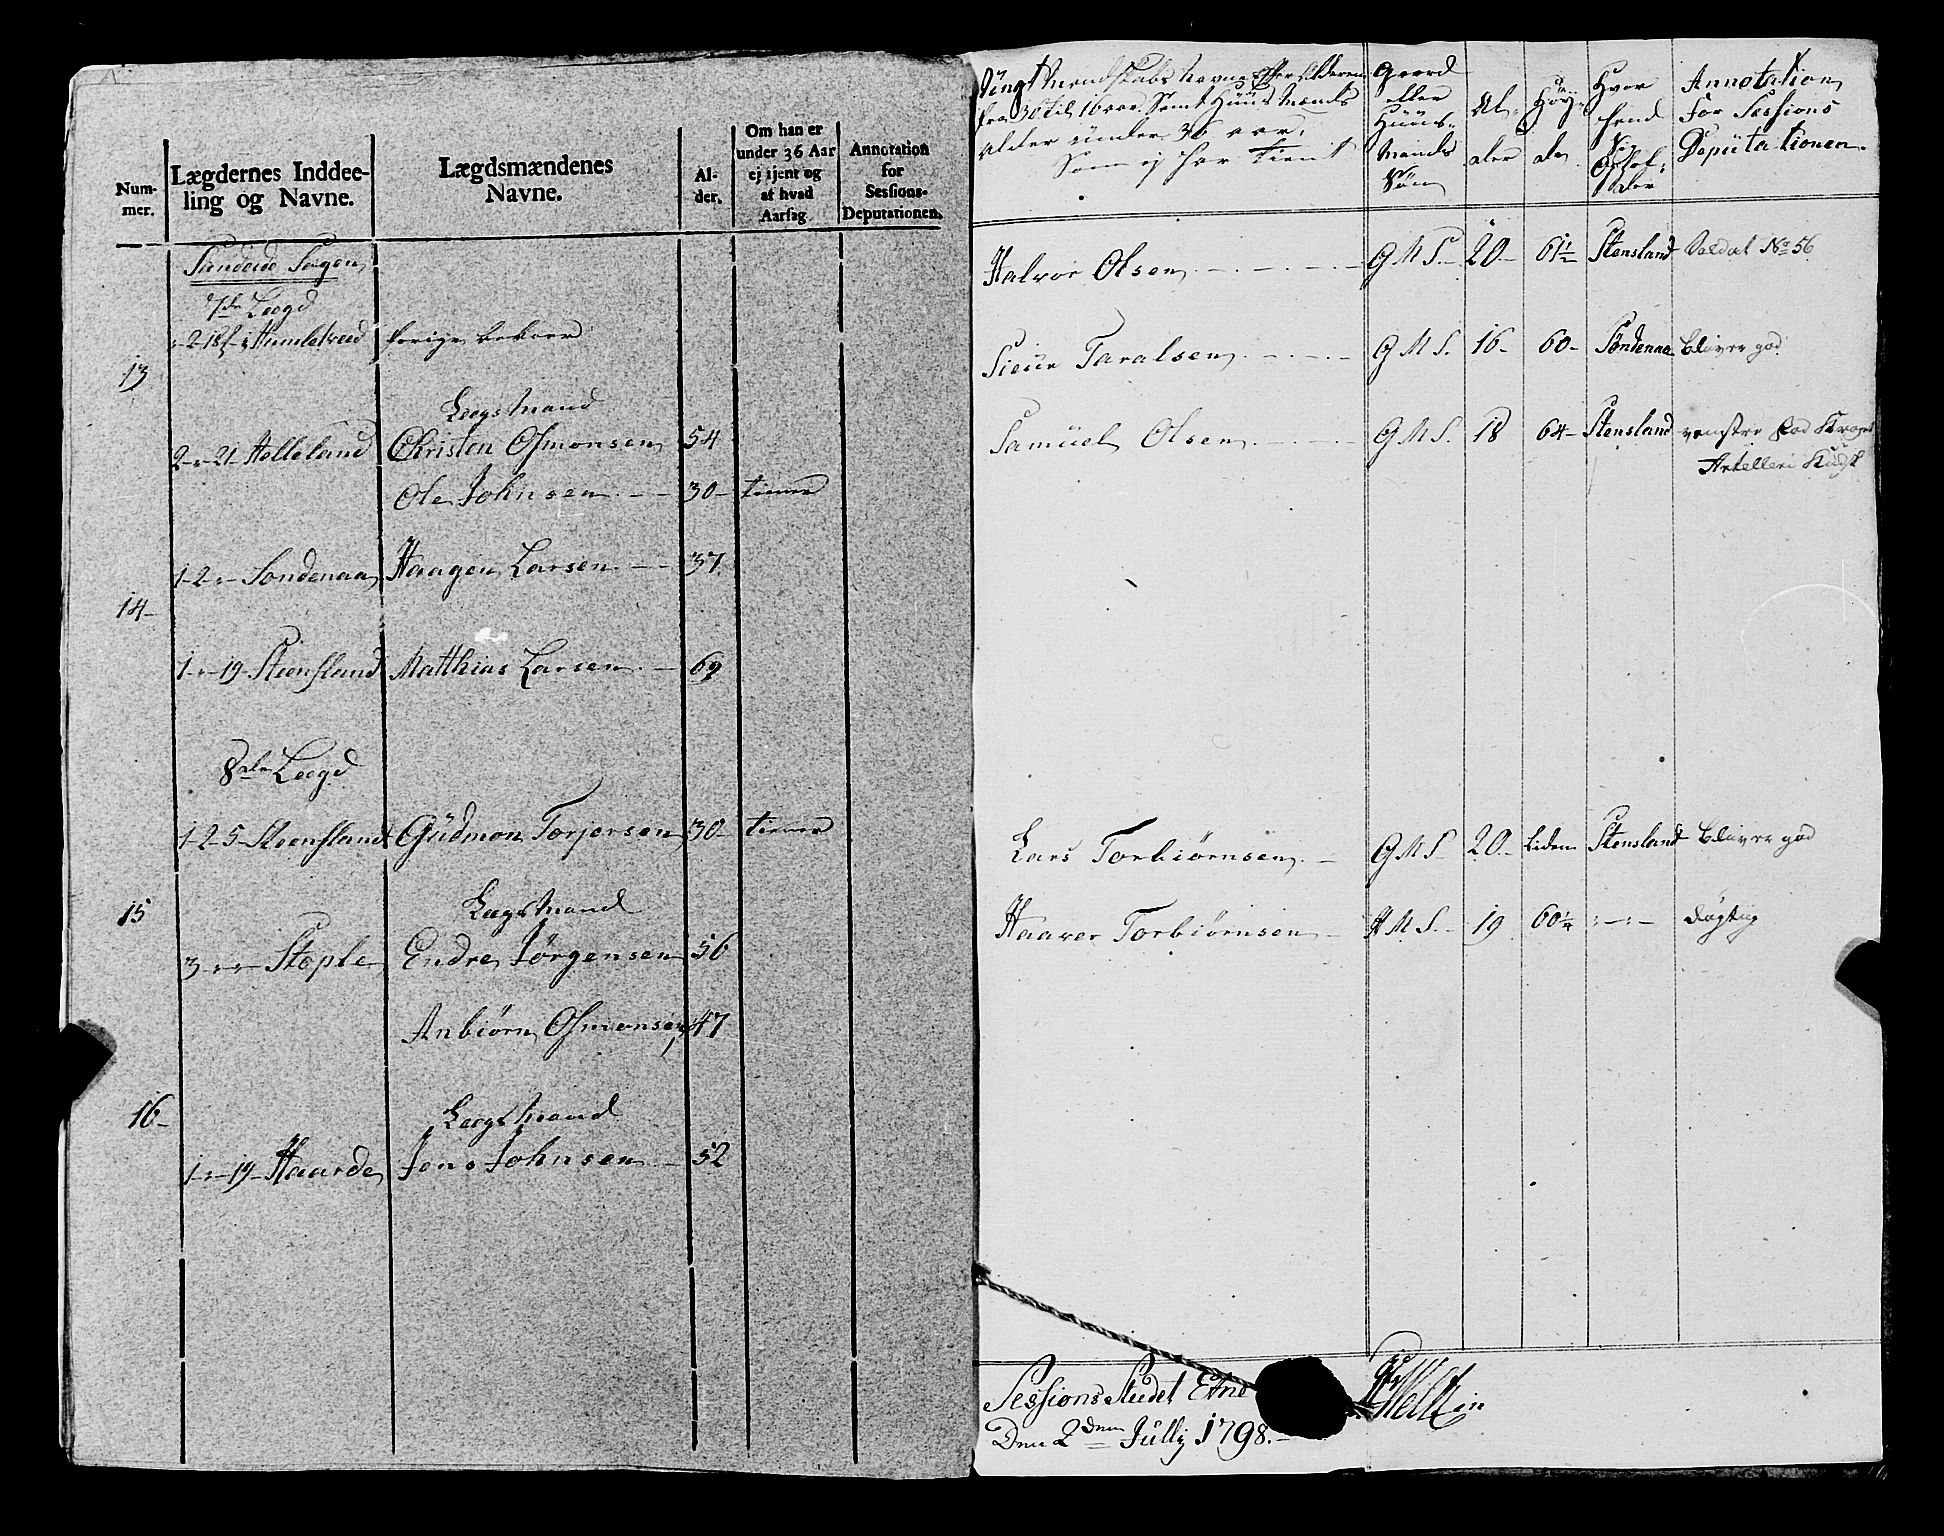 Num-
mer.
Lægdernes Inddee-
ling og Navne.
Lægdsmændenes
Navne.
Al-
der.
Om han er
under 36 Aar
ej tjent og
af hvad
Aarsag
Annotation
for
Sessions-
Deputationen.
Sandeide Sogen
7de Lægd
13
Lægs Mand
2-"-21- Helleland Christen Osmonsen 54
Ole Johnsen 30- tiener
1-2-"- Søndenaa Haagen Larsen 37
14-
1-"-19- Steensland Matthias Larsen 69
8de Lægd
1-2-5- Steensland Gudmon Torjersen 30- tiener
15
Lægs Mand
3-"-"- Stople Endre Jørgensen 56
Anbiørn Osmonsen 47
16-
Lægs Mand
1-"-19- Haarde Jens Johnsen 52
Ungt Mandskabs Navne Efter Alderen
fra 36 til 16 aar, Samt Huus Mænds
alder under 36 aar,
Som ej har tient
Gaard
eller
Huus-
Mands
Søn
Al-
der
Høy-
de
Hvor
Annotation
For Sessions
Deputationen
Halvor Olsen G M S 20- 61½ Stensland Soldat No 56
Siur Taralsen G M S. 16- 60- Søndenaa bliver god
Samuel Olsen G M S. 18 64- Stensland venstre
Artelleri Kudsk
Lars Torbiørnsen G M S 20- liden Stensland bliver god
Haaver Torbiørnsen H M S. 19 60¼ -"- dygtig
Sessions Stedet Etne
Den 2den Jully 1798.